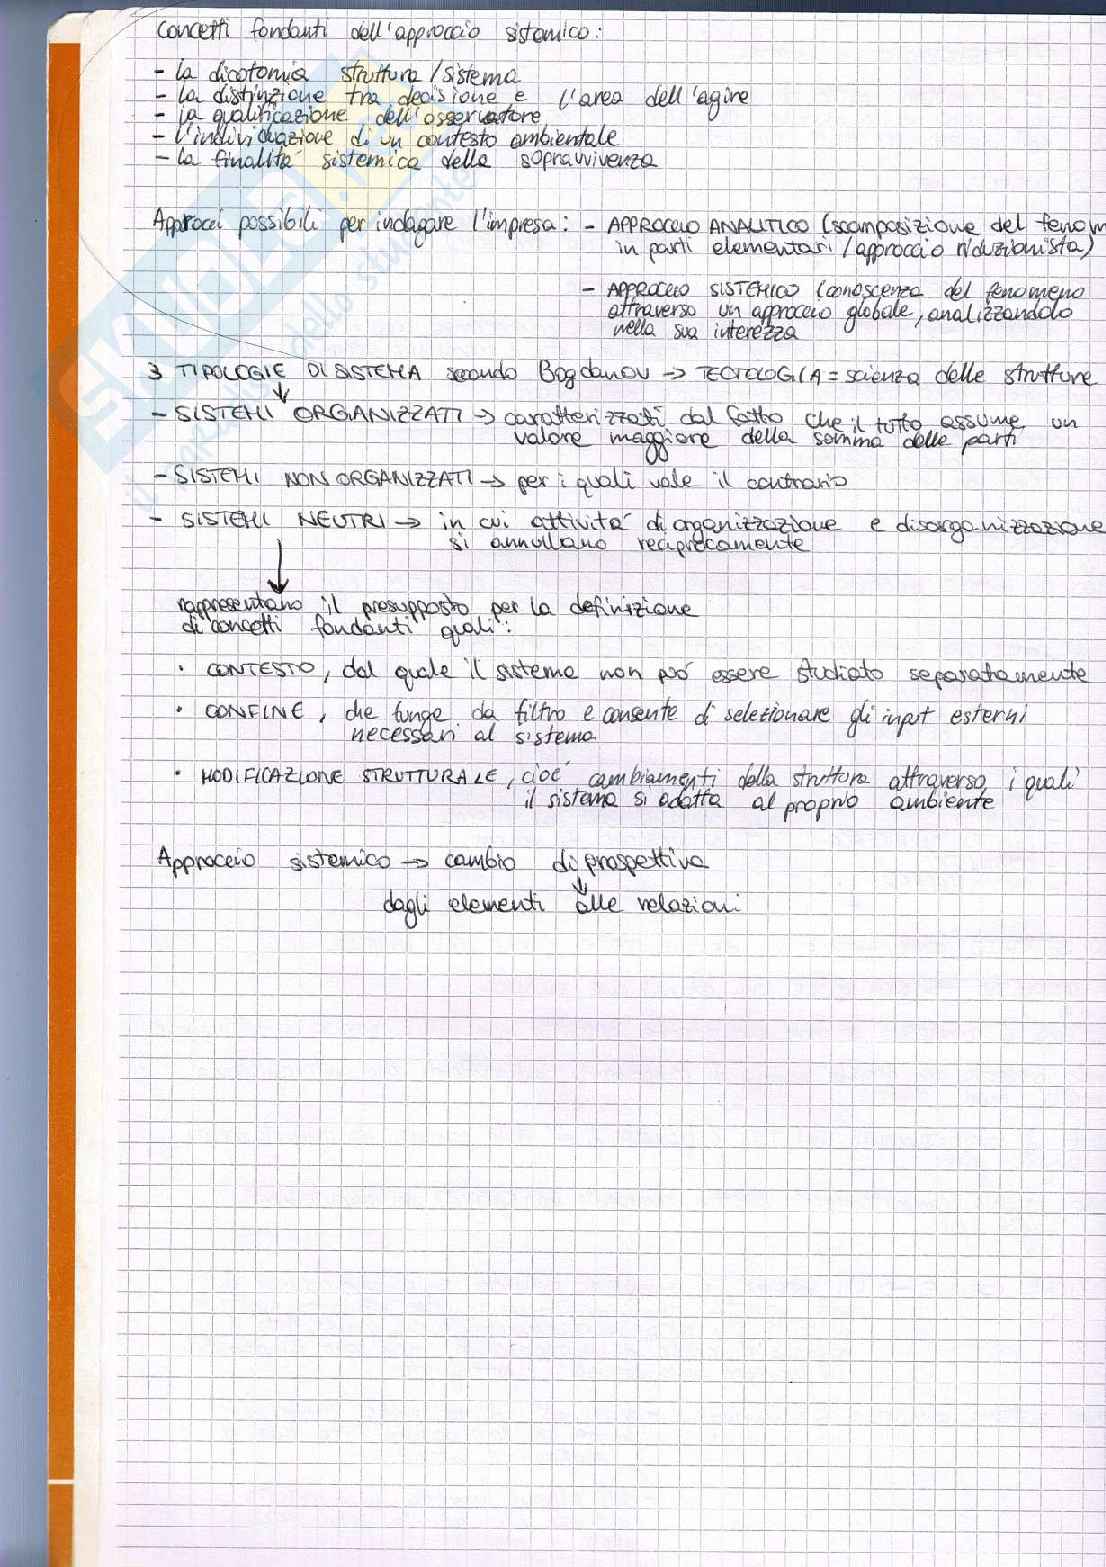 Concetti fondanti dell'approccio sistemico:
- la dicotomia struttura/sistema
- la distinzione tra decisione e l'area dell'agire
- la qualificazione dell'osservatore
- l'individuazione di un contesto ambientale
- la finalità sistemica della sopravvivenza
Approcci possibili per indagare l'impresa: - APPROCCIO ANALITICO (scomposizione del fenom
in parti elementari/approccio riduzionista)
- APPROCCIO SISTEMICO (conoscenza del fenomeno
attraverso un approccio globale, analizzandolo
nella sua interezza
3 TIPOLOGIE DI SISTEMA secondo Bogdanov → TECTOLOGIA = scienza delle strutture
↓
- SISTEMI ORGANIZZATI → caratterizzati dal fatto che il tutto assume un
valore maggiore della somma delle parti
- SISTEMI NON ORGANIZZATI → per i quali vale il contrario
- SISTEMI NEUTRI → in cui attività di organizzazione e disorganizzazione
si annullano reciprocamente
↓
rappresentano il presupposto per la definizione
di concetti fondanti quali:
• CONTESTO, dal quale il sistema non può essere studiato separatamente
• CONFINE, che funge da filtro e consente di selezionare gli input esterni
necessari al sistema
• MODIFICAZIONE STRUTTURALE, cioè cambiamenti della struttura attraverso i quali
il sistema si adatta al proprio ambiente
Approccio sistemico → cambio di prospettiva
↓
dagli elementi alle relazioni
SKUOLA.net
il portale dello studente